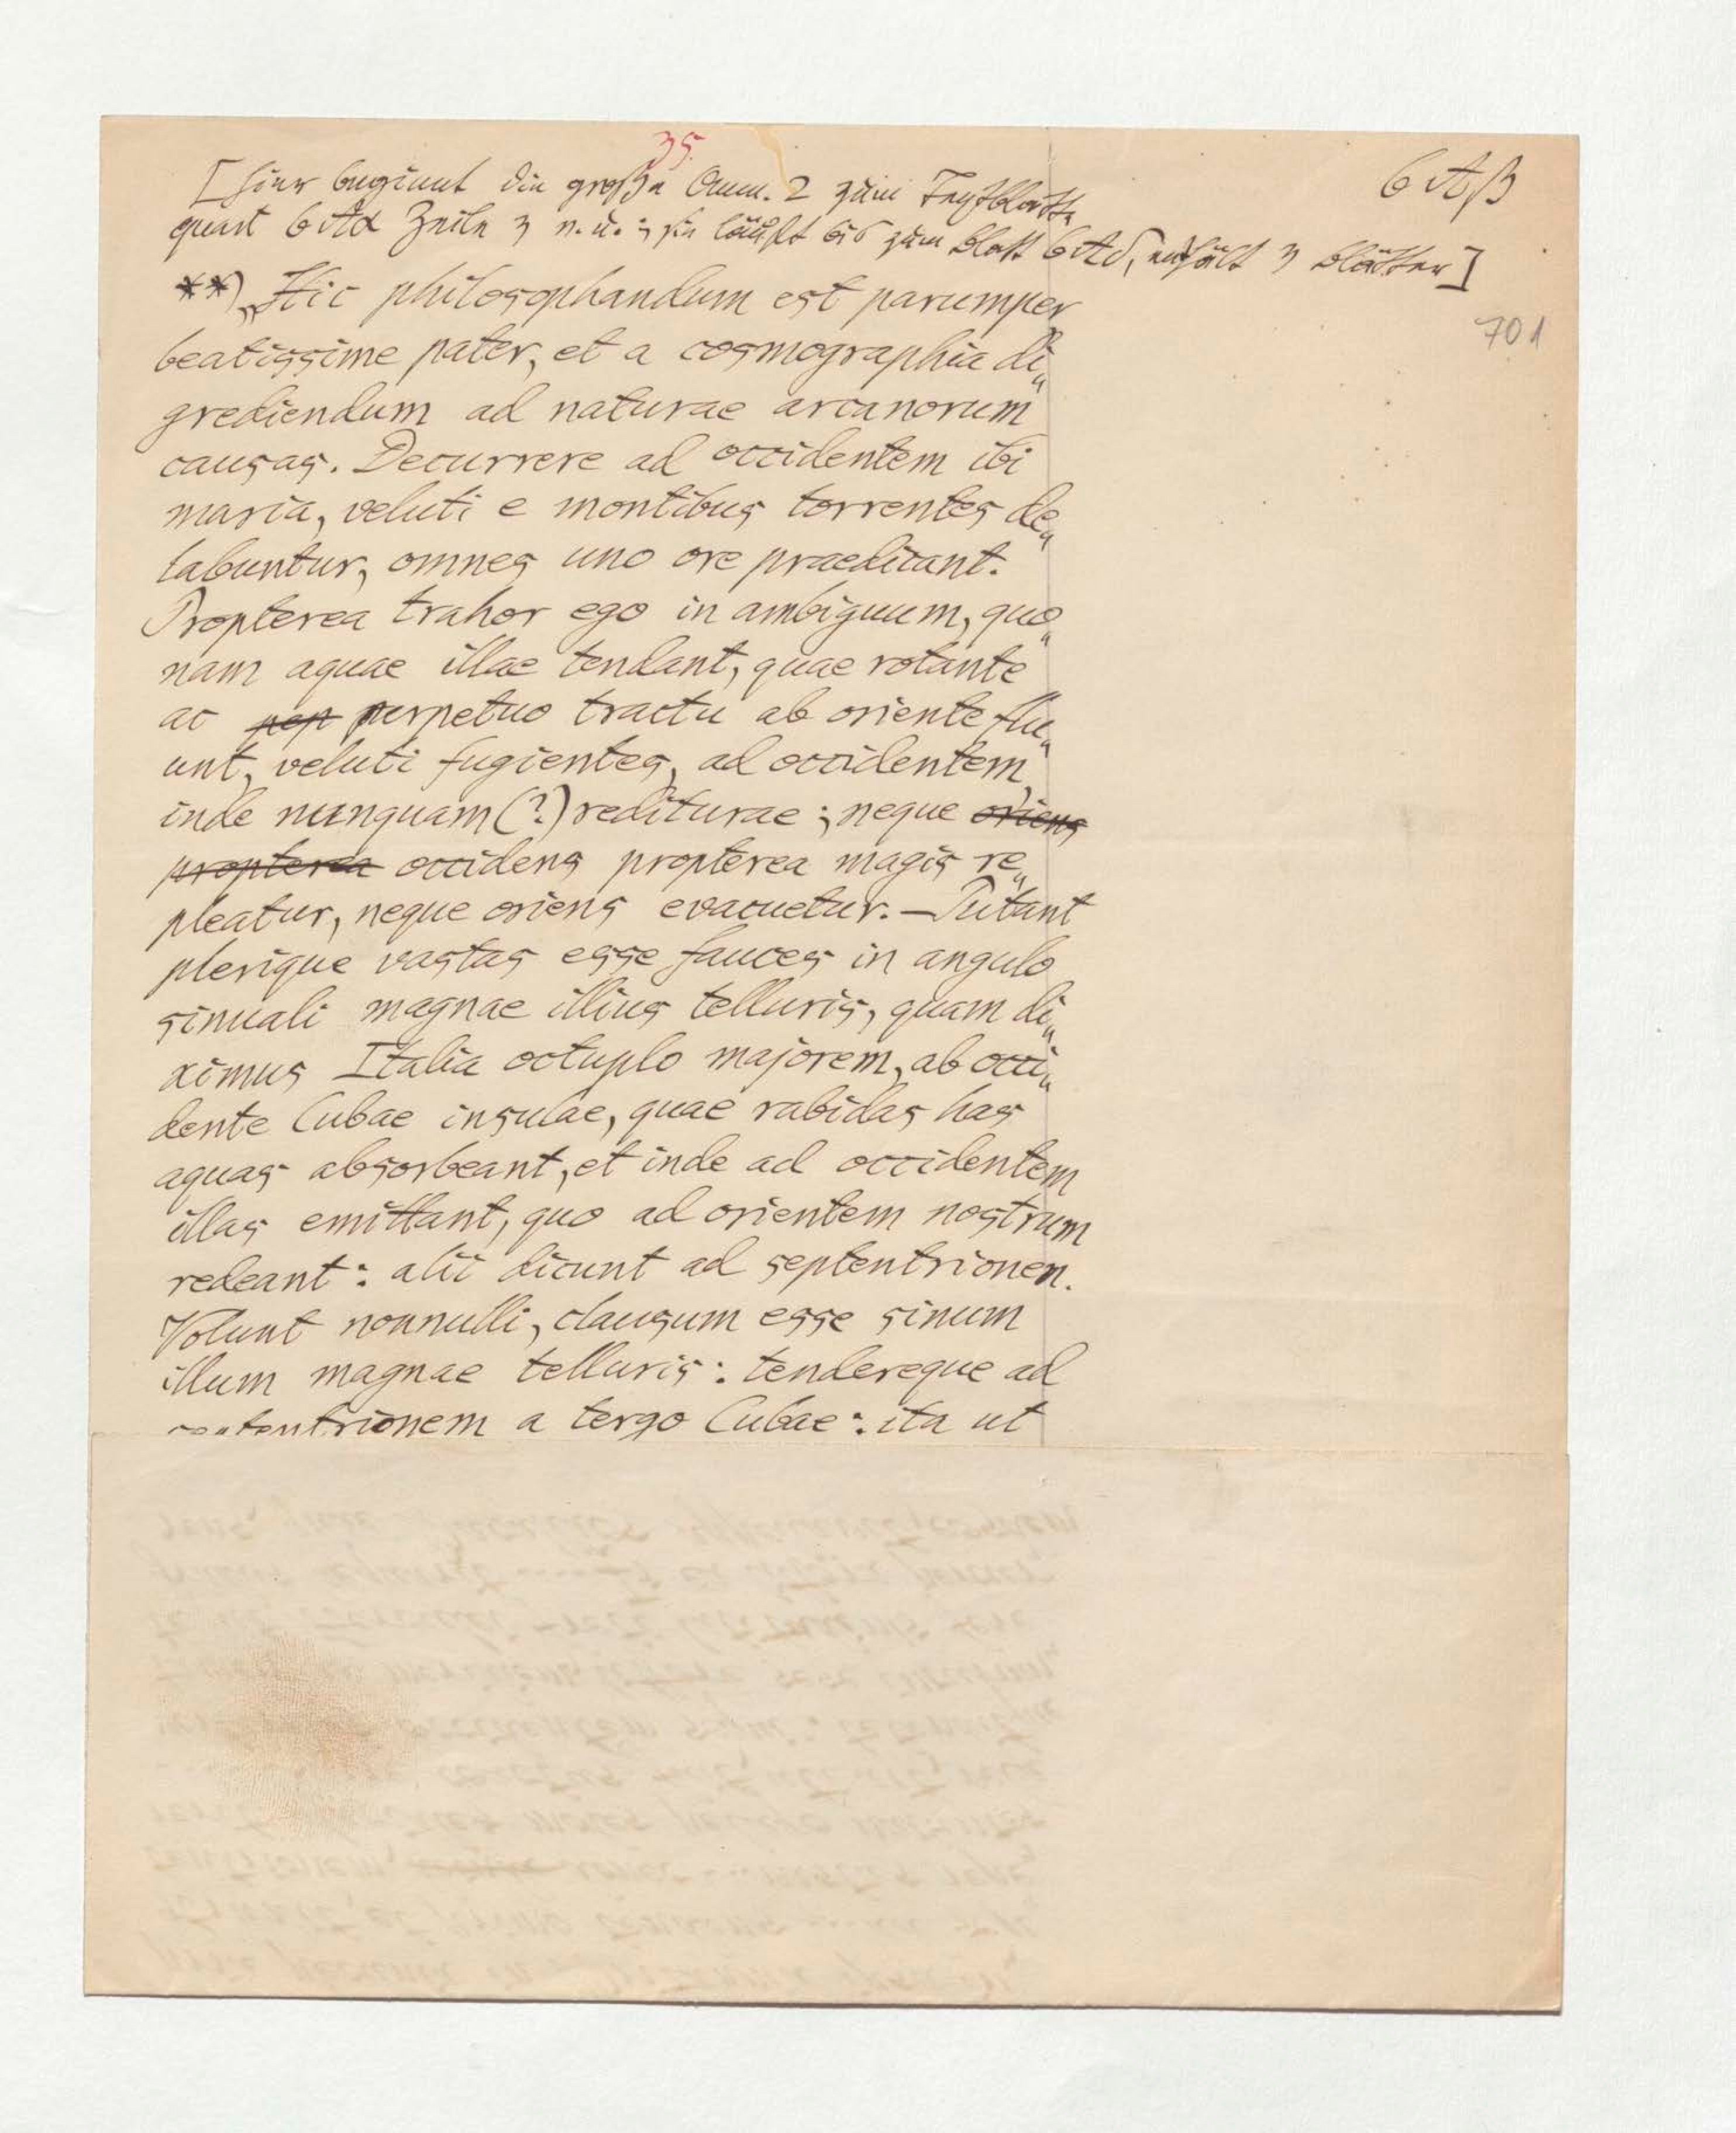 35.
6 Aβ
[Hier beginnt die große Anm. 2 zum Textblatte
quart 6 Aα Zeile 3 v. u.; sie läuft bis zum Blatt 6 Aδ, enthält 3 Blätter]
701
**) „Hic philosophandum est parumper
beatissime pater, et a cosmographia di„
grediendum ad naturae arcanorum
causas. Decurrere ad occidentem ibi
maria, veluti e montibus torrentes de„
labuntur, omnes uno ore praedicant.
Propterea trahor ego in ambiguum, quo„
nam aquae illae tendant, quae rotante
ac pep perpetuo tractu ab oriente flu„
unt, veluti fugientes, ad occidentem,
inde nunquam (?) rediturae; neque oriens
propterea occidens propterea magis re„
pleatur, neque oriens evacuetur. — Putant
plerique vastas esse fauces in angulo
sinuali magnae illius telluris, quam di„
ximus Italia octuplo majorem, ab occi„
dente Cubae insulae, quae rabidas has
aquas absorbeant, et inde ad occidentem
illas emittant, quo ad orientem nostrum
redeant: alii dicunt ad septentrionem.
Volunt nonnulli, clausum esse sinum
illum magnae telluris: tendereque ad
septentrionem a tergo Cubae: ita ut